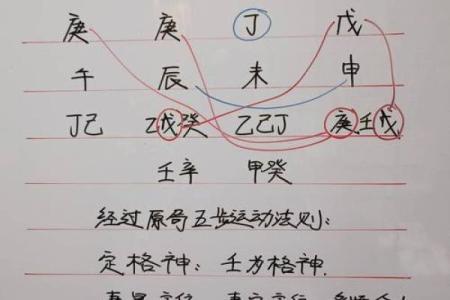 庚 庚 丁 戊
午 辰 未 申
丁己 乙戊癸 乙己丁 庚壬戊
壬辛 甲癸
经过原局五步运动法则:
定格神: 壬为格神.